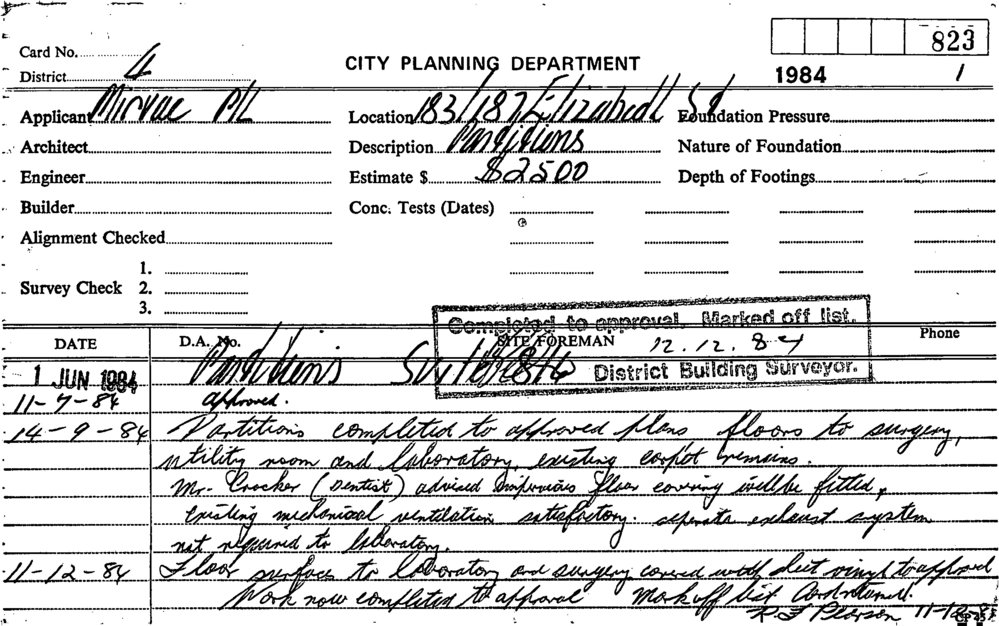 Card No. 823
District 4 CITY PLANNING DEPARTMENT 1984 1
Applicant Mirvac P/L Location 183/187 Elizabeth St Foundation Pressure
Architect Description Partitions Nature of Foundation
Engineer Estimate $ $2500 Depth of Footings
Builder Conc. Tests (Dates)
Alignment Checked
1.
Survey Check 2.
3.
Completed to approval. Marked off list.
DATE D.A. No. SITE FOREMAN 12.12.84 Phone
1 JUN 1984 Partitions Suite District Building Surveyor.
11-7-84 approved.
14-9-84 Partitions completed to approved plans floors to surgery,
utility room and laboratory, existing carpet remains.
Mr. Crocker (Dentist) advised impervious floor covering will be fitted,
existing mechanical ventilation satisfactory. seperate exhaust system
not required to laboratory.
11-12-84 Floor surfaces to laboratory and surgery covered with sheet vinyl to approval
Work now completed to approval Mark off list Card returned.
R F Pearson 11-12-84